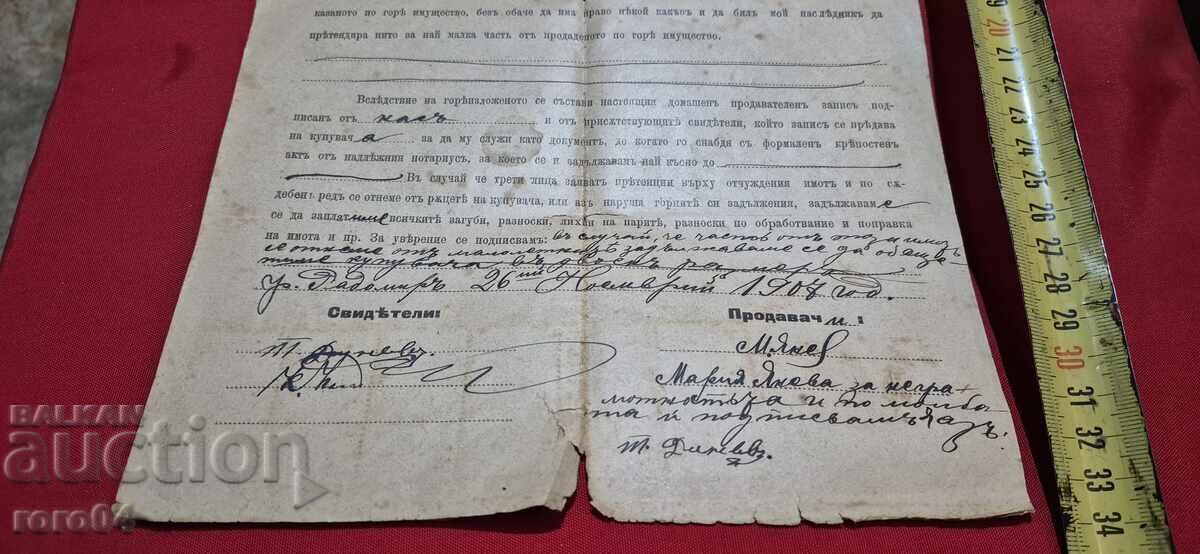 казаното по горѣ имущество, безъ обаче да има право нѣкой какъвъ и да билъ мой наслѣдникъ да
прѣтендира нито за най малка часть отъ продаденото по горѣ имущество.
Вслѣдствие на горѣизложеното се състави настоящия домашенъ продавателенъ записъ под-
писан отъ насъ и отъ присѫтствующитѣ свидѣтели, който записъ се прѣдава
на купувача за да му служи като документъ, до когато го снабдя съ формаленъ крѣпостенъ
актъ отъ надлѣжния нотариусъ, за което се и задължавамъ най късно до
Въ случай че трети лица заяватъ прѣтенции върху отчуждения имотъ и по сѫ-
дебенъ редъ се отнеме отъ рѫцетѣ на купувача, или азъ наруша горнитѣ си задължения, задължаваме
се да заплатиме всичкитѣ загуби, разноски, лихви на паритѣ, разноски по обработвание и поправка
на имота и пр. За уверение се подписвамъ: въ случай, че частъ отъ този имотъ
се отнеме отъ малолетнитѣ задължаваме се да обеще
тиме купувача въ двоенъ размеръ
гр. Радомиръ 26ий Ноемврий 1907 год.
Свидѣтели:
Продавачи:
Т. Диневъ
М. Янев
К.
Мария Янова за негра-
мотностьта и по молба-
та ѝ подписвамъ азъ:
Т. Диневъ
20 22 23 24 25 26 27 28 29 30 31 32 33 34
BALKAN
auction
roro04